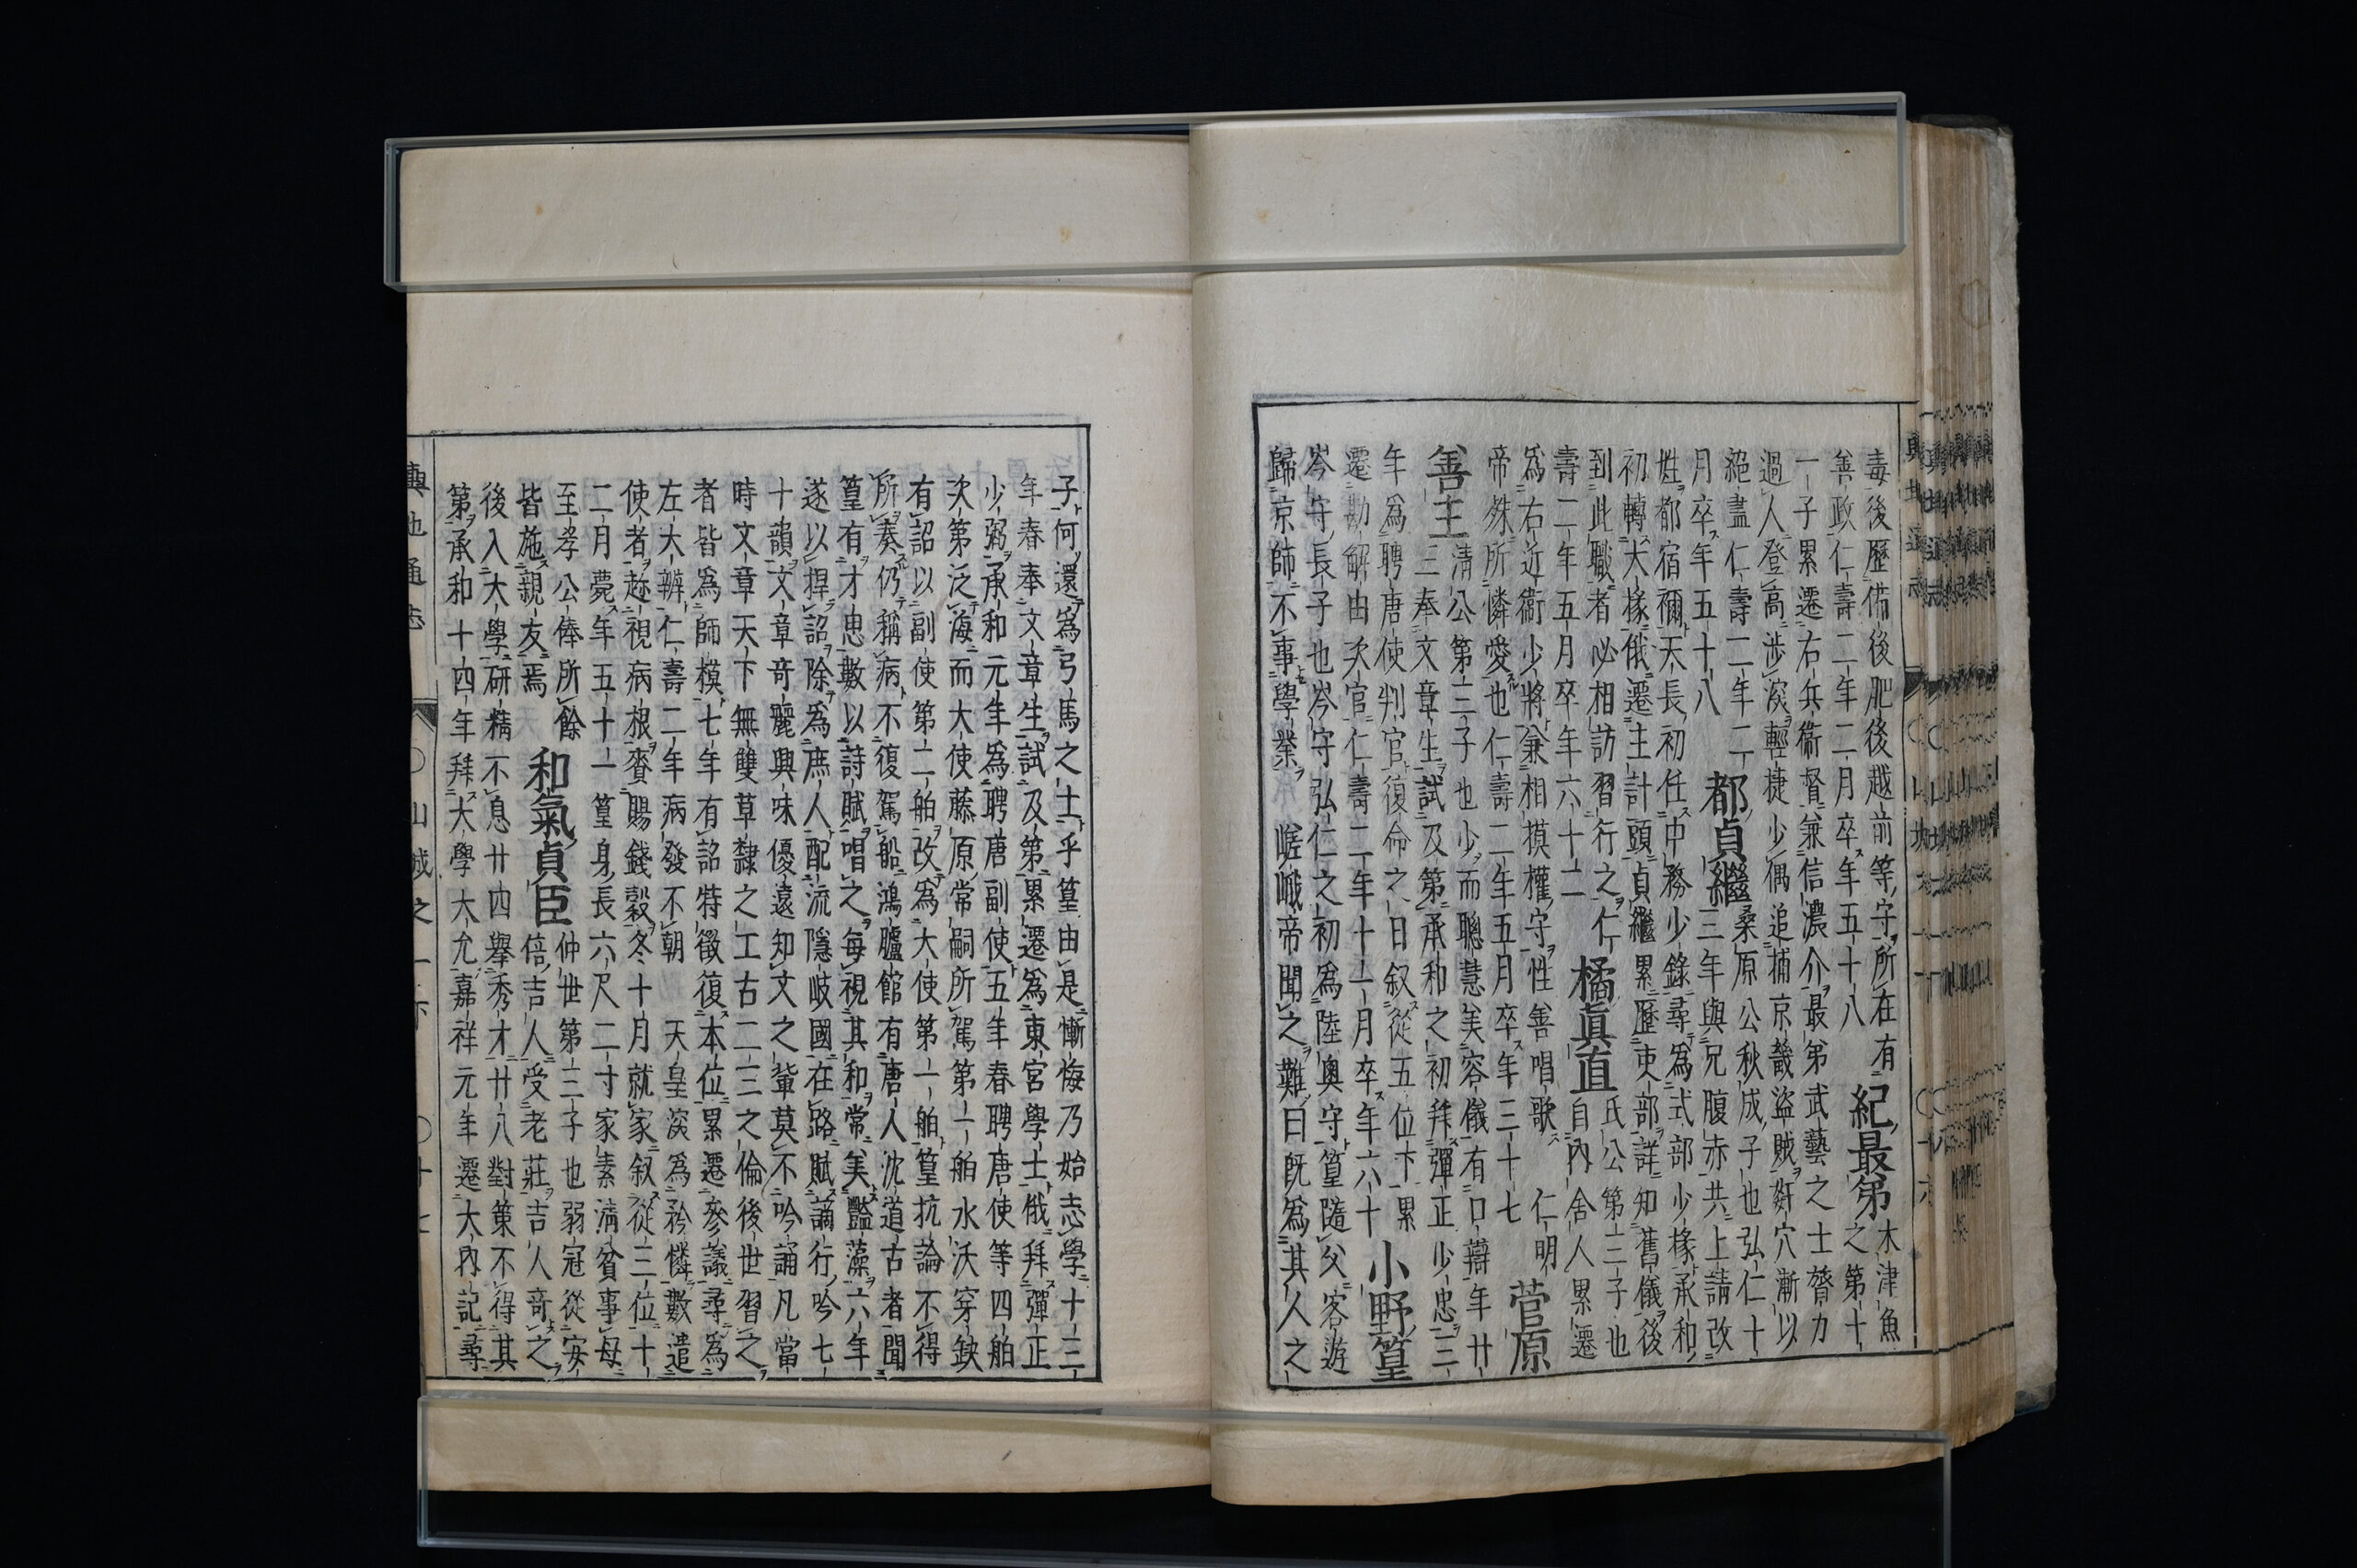 毒後歷備後肥後越前等守所在有
善政仁壽二年二月卒年五十八
紀最弟
木津魚
之第十
一子累遷右兵衞督兼信濃介最弟武藝之士膂力
過人登高涉深輕捷少偶追捕京畿盜賊姧穴漸以
絕盡仁壽二年二
月卒年五十八
都貞繼
桑原公秋成子也弘仁十
三年與兄腹赤共上請改
姓都宿禰天長初任中務少錄尋爲式部少椽承和
初轉大椽俄遷主計頭貞繼累歷吏部詳知舊儀後
到此職者必相訪習行之仁
壽二年五月卒年六十二
橘眞直
氏公第三子也
自內舍人累遷
爲右近衞少將兼相摸權守性善唱歌仁明
帝殊所憐愛也仁壽二年五月卒年三十七
菅原
善主
淸公第三子也少而聰慧美容儀有口辯年廿
三奉文章生試及第承和之初拜彈正少忠三
年爲聘唐使判官復命之日叙從五位下累
遷勘解由次官仁壽二年十一月卒年六十
小野篁
岑守長子也岑守弘仁之初爲陸奧守篁隨父客遊
歸京師不事學業嵯峨帝聞之難曰旣爲其人之
子何還爲弓馬之士乎篁由是慚悔乃始志學十三
年春奉文章生試及第累遷爲東宮學士俄拜彈正
少弼承和元年爲聘唐副使五年春聘唐使等四舶
次第泛海而大使藤原常嗣所駕第一舶水沃穿缺
有詔以副使第二舶改爲大使第一舶篁抗論不得
所奏仍稱病不復駕船鴻臚館有唐人沈道古者聞
篁有才思數以詩賦唱之每視其和常美豔藻六年
遂以捍詔除爲庶人配流隱岐國在路賦謫行吟七
十韻文章奇麗興味優遠知文之輩莫不吟誦凡當
時文章天下無雙草隸之工古二三之倫後世習之
者皆爲師模七年有詔特徵復本位累遷參議尋爲
左大辨仁壽二年病發不朝天皇深爲矜憐數遣
使者趁視病根賚賜錢穀冬十月就家叙從三位十
二月薨年五十一篁身長六尺二寸家素淸貧事母
至孝公俸所餘
皆施親友焉
和氣貞臣
仲世第三子也弱冠從安
倍吉人受老莊吉人奇之
後入大學硏精不息廿四舉秀才廿八對策不得其
第承和十四年拜大學大允嘉祥元年遷大內記尋